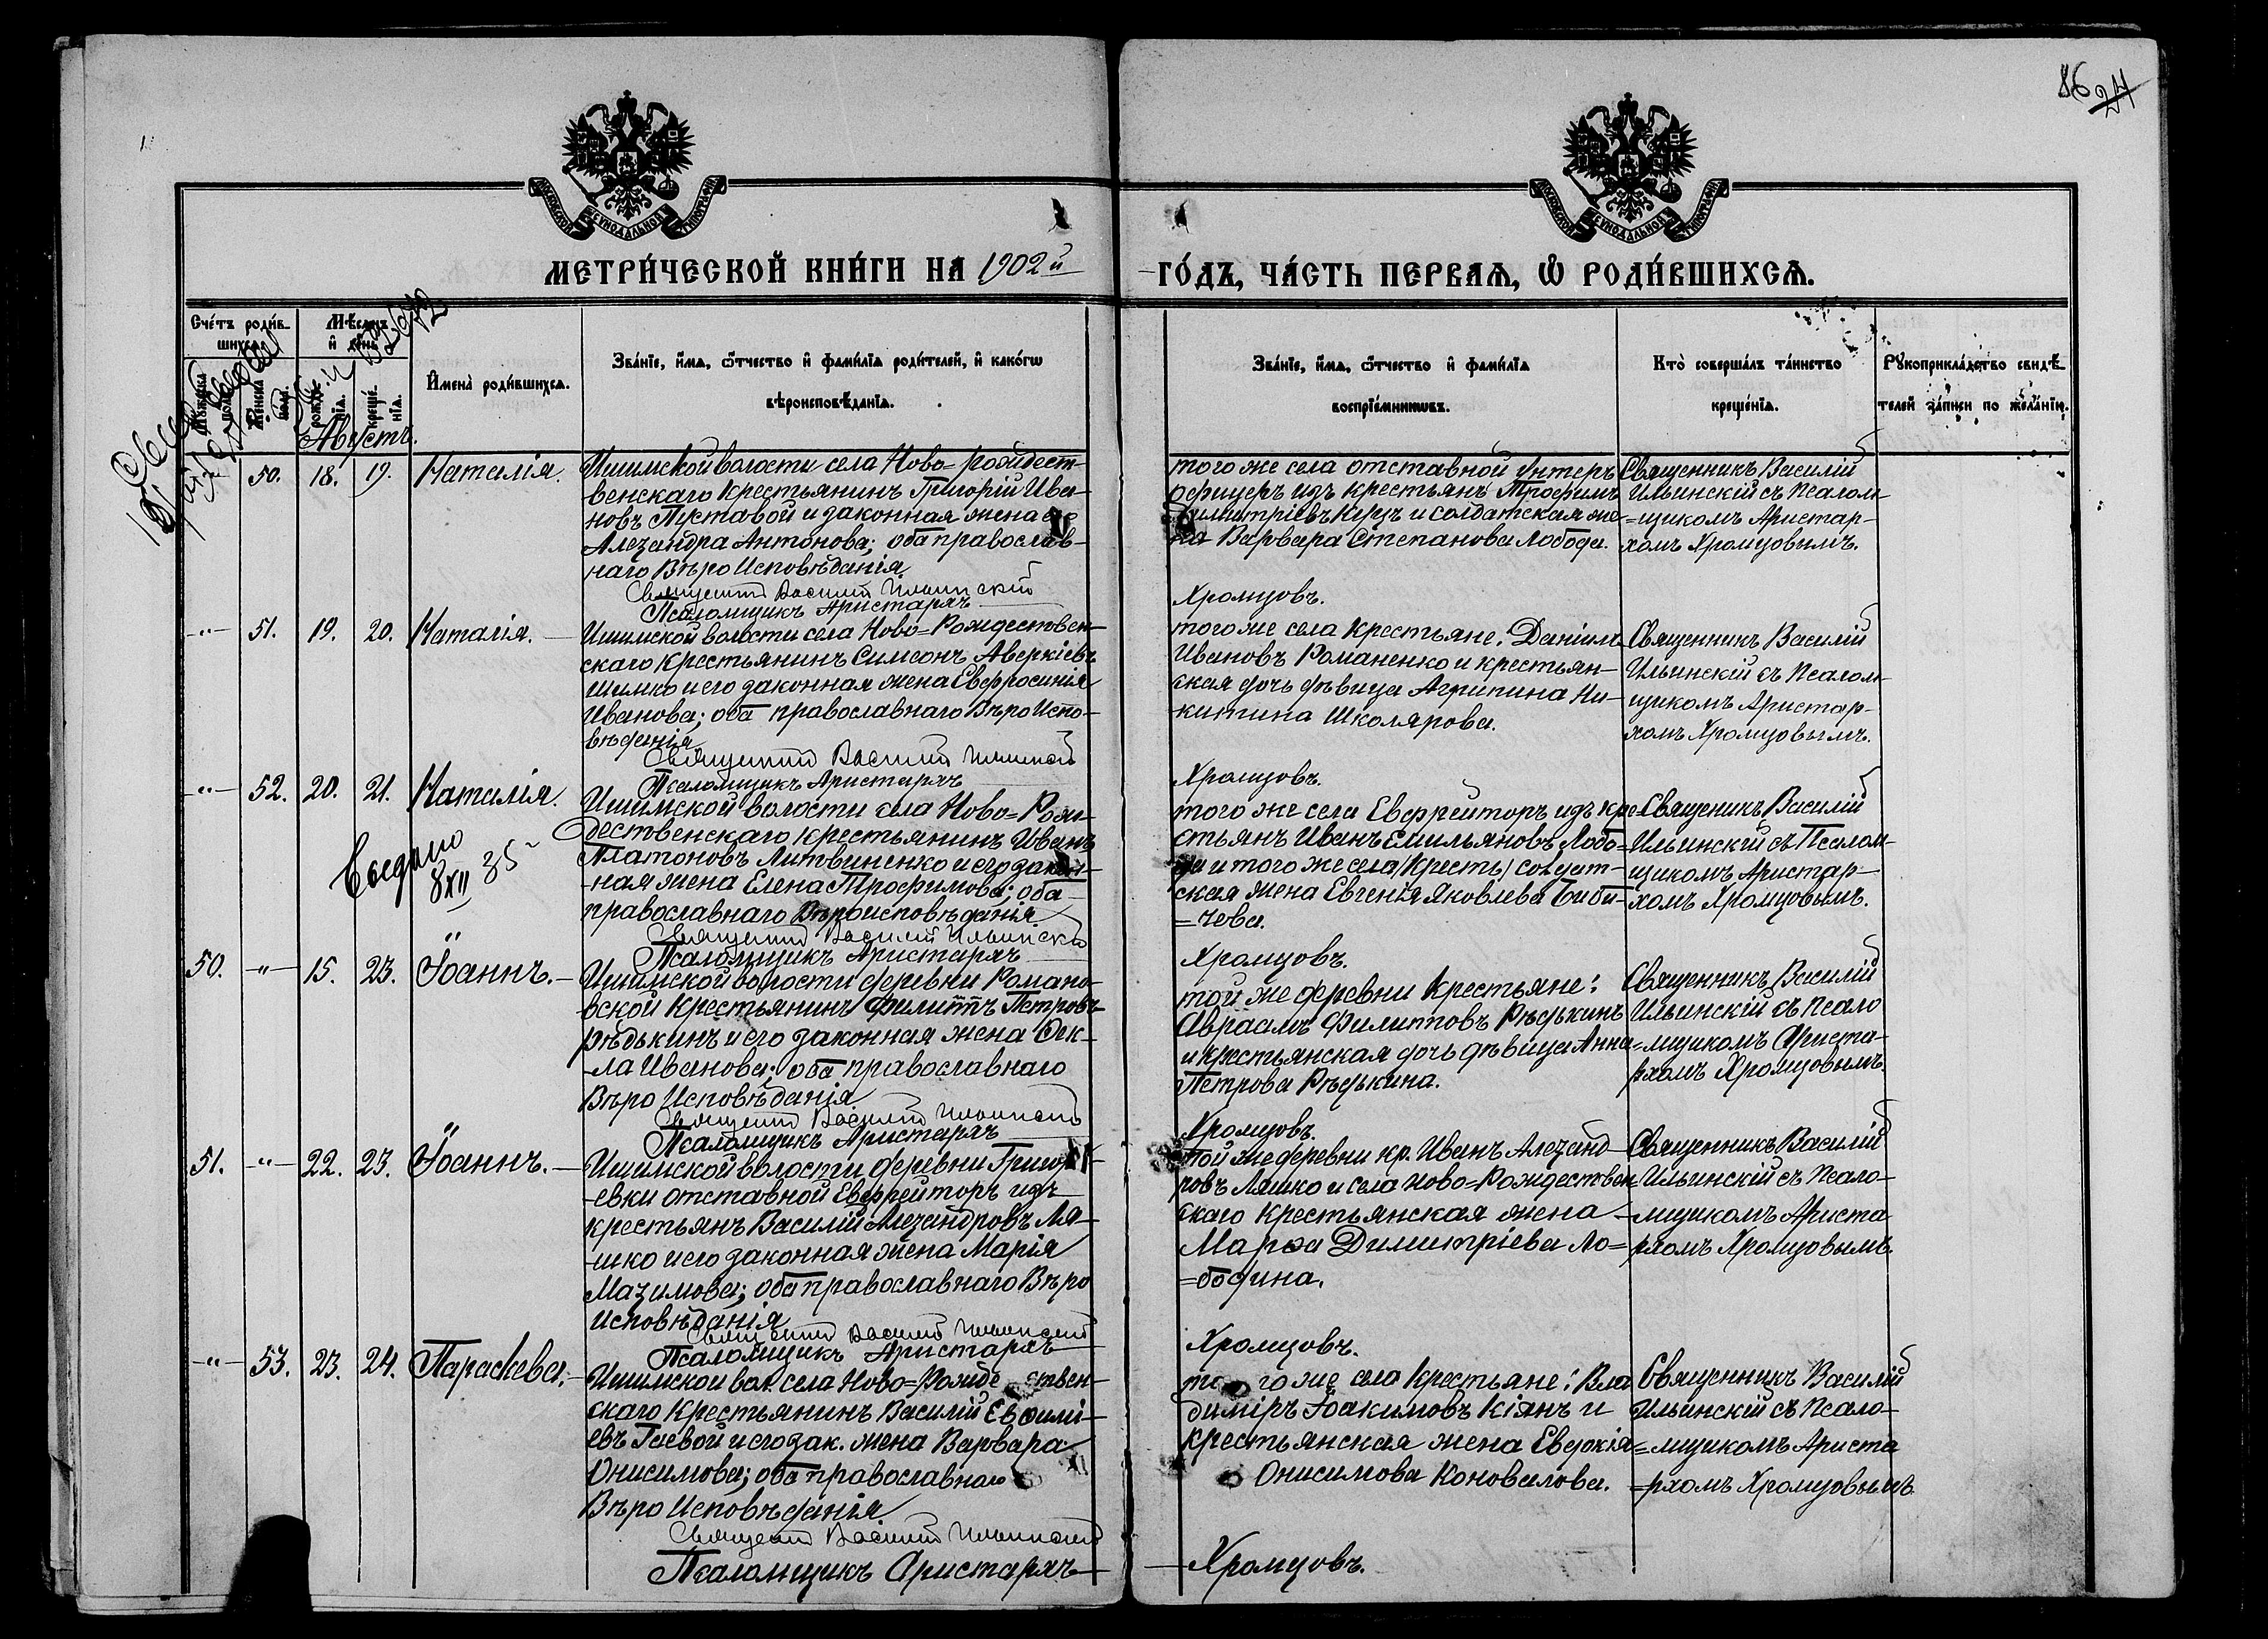 86 24
МОСКОВСКОЙ СѴНОДАЛЬНОЙ ТИПОГРАФІИ
МОСКОВСКОЙ СѴНОДАЛЬНОЙ ТИПОГРАФІИ
МЕТРИ́ЧЕСКОЙ КНИ́ГИ НА 1902й
ГО́ДЪ, ЧА́СТЬ ПЕРВАѦ, Ѡ РОДИ́ВШИХСѦ.
Сче́тъ роди́в-
шихсѧ.
Мѣсѧцъ
и҆ день.
Мужска
пола.
Женска
пола.
рожде-
нїѧ.
креще́-
нїѧ.
И҆мена̀ роди́вшихсѧ.
Зва́нїе, и҆́мѧ, ѻ҆́тчество и҆ фами́лїѧ роди́телей, и҆ како́гѡ
вѣроисповѣ́данїѧ.
Зва́нїе, и҆́мѧ, ѻ҆́тчество и҆ фами́лїѧ
воспрїе́мникѡвъ.
Кто̀ соверша́лъ та́инство
креще́нїѧ.
Рꙋкоприкла́дство свидѣ́-
телей за́писи по жела́нїю.
Августъ.
50. 18. 19. Наталія.
Ишимской волости села Ново=рождест-
венскаго крестьянинъ Григорій Ива-
новъ Пуставой и законная жена его
Александра Антонова; оба православ-
наго Вѣро Исповѣданія
Священникъ Василій Ильинскій
Псаломщикъ Аристархъ
того же села отставной Унтеръ
офицеръ изъ крестьянъ Трофимъ
Димитріевъ Куцъ и солдатская же-
на Варвара Степанова Лобода.
Хромцовъ.
Священникъ Василій
Ильинскій съ Псалом-
=щикомъ Аристар-
хомъ Хромцовымъ.
-"- 51. 19. 20. Наталія.
Ишимской волости села Ново=Рождествен-
скаго крестьянинъ Симеонъ Аверкіевъ
Шимко и его законная жена Евфросинія
Иванова; оба православнаго Вѣро Испо-
вѣданія
Священникъ Василій Ильинскій
Псаломщикъ Аристархъ
того же села крестьяне: Даніилъ
Ивановъ Романенко и крестьян-
ская дочь дѣвица Агрипина Ни-
китина Школярова.
Хромцовъ.
Священникъ Василій
Ильинскій съ Псалом-
щикомъ Аристар-
хомъ Хромцовымъ.
-"- 52. 20. 21. Наталія.
8 XII 35
Ишимской волости села Ново=Рож-
дественскаго крестьянинъ Иванъ
Платоновъ Литвиненко и его закон-
-ная жена Елена Трофимова; оба
православнаго Вѣроисповѣданія
Священникъ Василій Ильинскій
Псаломщикъ Аристархъ
того же села Евфрейторъ изъ кре-
стьянъ Иванъ Емильяновъ Лобо=
да и того же села (крестъ) солдат-
ская жена Евгенія Яковлева Биби-
=чева.
Хромцовъ.
Священикъ Василій
Ильинскій съ Псалом-
щикомъ Аристар-
хомъ Хромцовымъ.
50. -"- 15. 23. Іоаннъ.
Ишимской волости деревни Романо-
вской крестьянинъ Филиппъ Петровъ
рѣдькинъ и его законная жена Фек-
-ла Иванова; оба православнаго
Вѣро Исповѣданія
Священникъ Василій Ильинскій
Псаломщикъ Аристархъ
той же деревни крестьяне:
Авраамъ Филиповъ Рѣдькинъ
и крестьянская дочь дѣвица Анна
Петрова Рѣдькина.
Хромцовъ.
Священникъ Василій
Ильинскій съ Псало
=мщикомъ Ариста-
рхомъ Хромцовымъ.
51. -"- 22. 23. Іоаннъ.
Ишимской волости деревни Григорь-
-евки отставной Евфрейторъ изъ
крестьянъ Василій Александровъ Ля-
-шко и его законная жена Марія
Максимова; оба православнаго Вѣро
Исповѣданія
Священникъ Василій Ильинскій
Псаломщикъ Аристархъ
той же деревни кр. Иванъ Александ-
ровъ Ляшко и села Ново=Рождествен
скаго крестьянская жена
Марѳа Димитріева Ло=
=бодина.
Хромцовъ.
Священникъ Василій
Ильинскій съ Псало-
-мщикомъ Ариста
рхомъ Хромцовымъ
-"- 53. 23. 24. Параскева.
Ишимской вол. села Ново=Рождествен-
скаго крестьянинъ Василій Евѳимі-
евъ Гаевой и его зак. жена Варвара
Онисимова; оба православнаго
Вѣро Исповѣданія
Священникъ Василій Ильинскій
Псаломщикъ Аристархъ
того же села крестьяне: Вла
диміръ Іоакимовъ Кіянъ и
крестьянская жена Евдокія
Онисимова Коновалова.
Хромцовъ.
Священникъ Василій
Ильинскій съ Псало-
=мщикомъ Ариста
=рхомъ Хромцовымъ